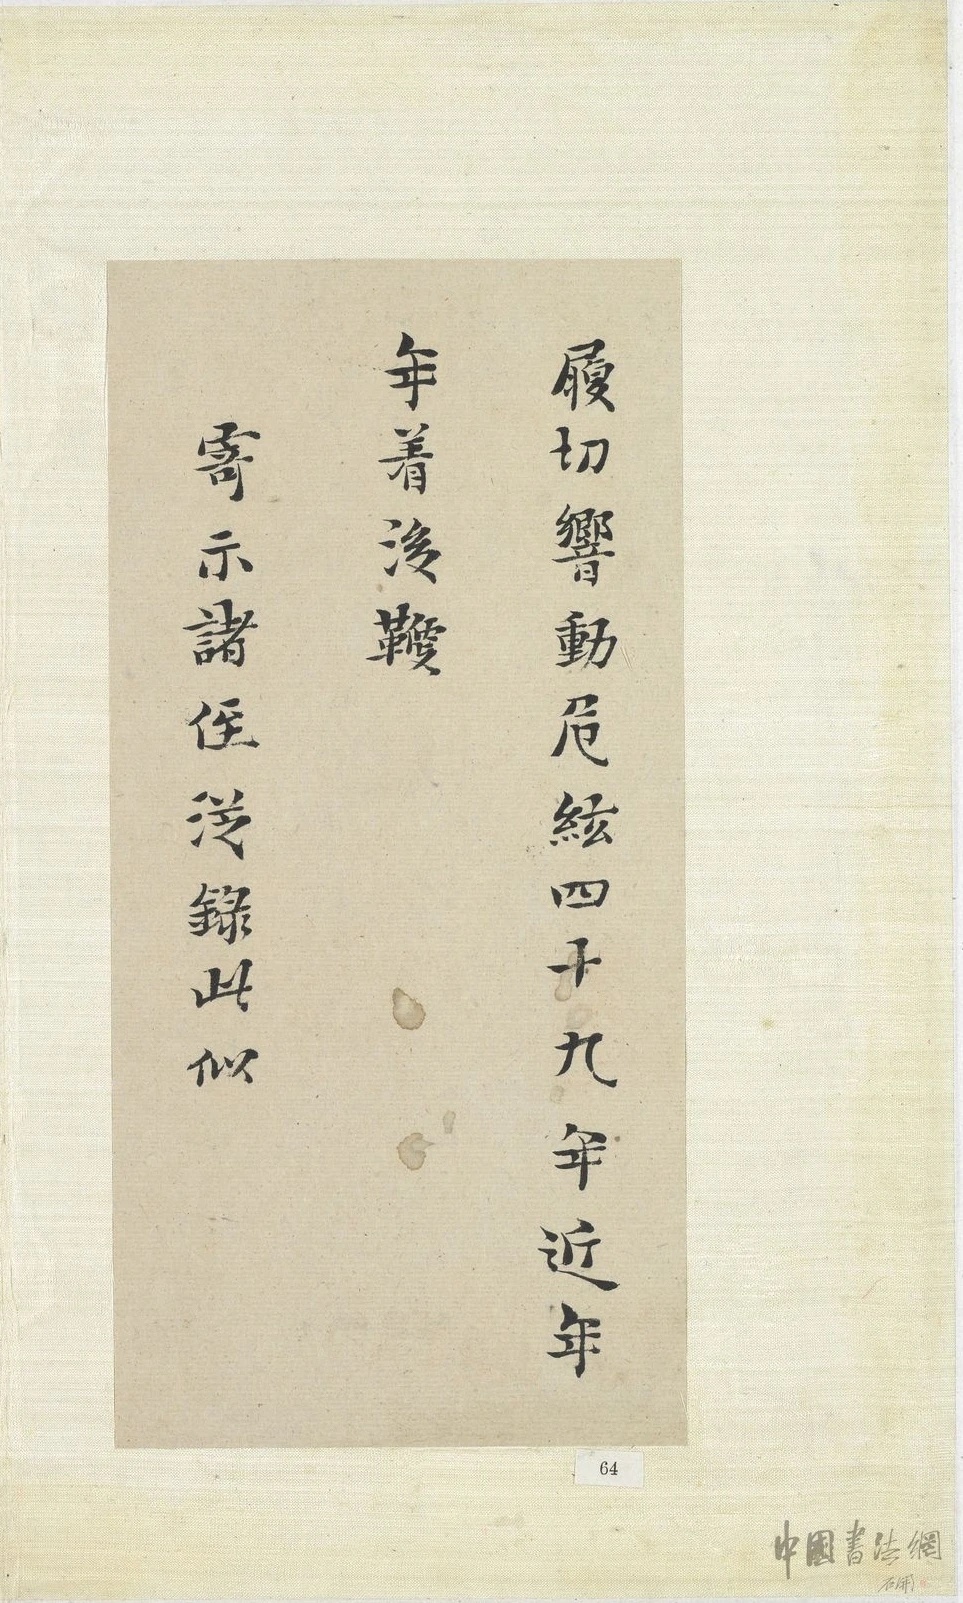 履切響動危絃四十九年近年
年着後鞭
寄示諸侄従錄此似
64
中國書法網